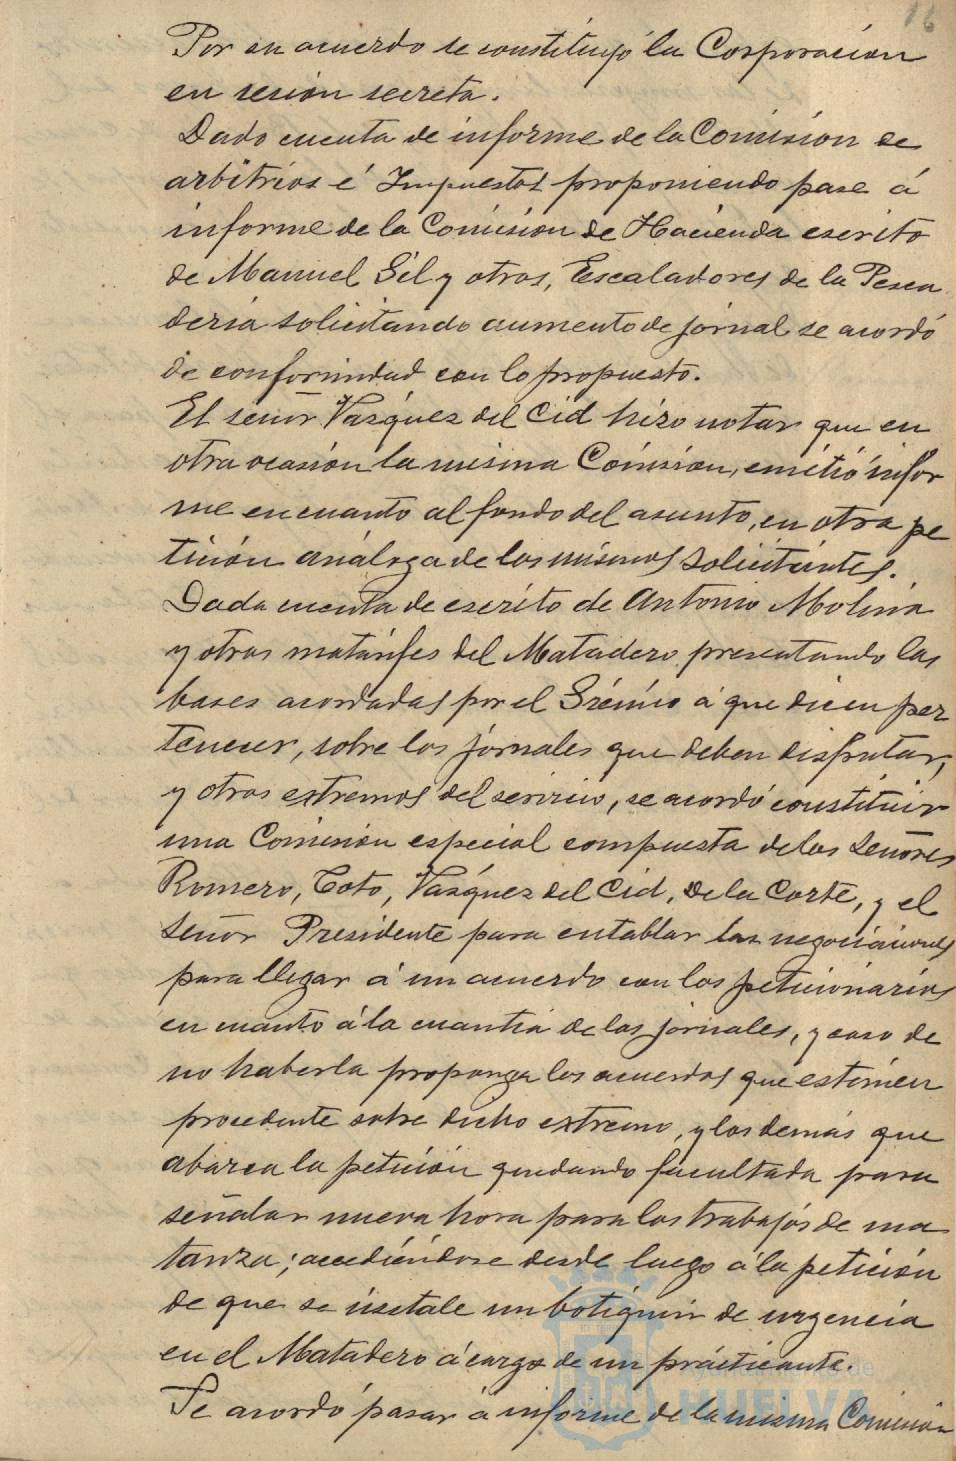 16
Por su acuerdo se constituyó la Corporación
en sesión secreta.
Dado cuenta de informe de la Comision de
arbitrios é Impuestos proponiendo pase á
informe de la Comision de Hacienda escrito
de Manuel Gil y otros, Escaladores de la Pesca
deria solicitando aumento de jornal se acordó
de conformidad con lo propuesto.
El señor Vasquez del Cid hizo notar que en
otra ocasión la misma Comision, emitió infor
me en cuanto al fondo del asunto, en otra pe
tición análoga de los mismos solicitantes.
Dada cuenta de escrito de Antonio Molina
y otros matarifes del Matadero presentando las
bases acordadas por el Gremio á que dicen per
tenecer, sobre los jornales que deben disfrutar,
y otros extremos del servicio, se acordó constituir
una Comision especial compuesta de los Señores
Romero, Toto, Vasquez del Cid, De la Corte, y el
Señor Presidente para entablar las negociaciones
para llegar á un acuerdo con los peticionarios
en cuanto á la cuantia de los jornales, y caso de
no haberla proponga los acuerdos que estimen
procedente sobre dicho extremo, y los demás que
abarca la petición quedando facultada para
señalar nueva hora para los trabajos de ma
tanza; accediéndose desde luego á la petición
de que se instale un botiquin de urgencia
en el Matadero á cargo de un practicante.
Se acordó pasar á informe de la misma Comision
Ayuntamiento de
HUELVA